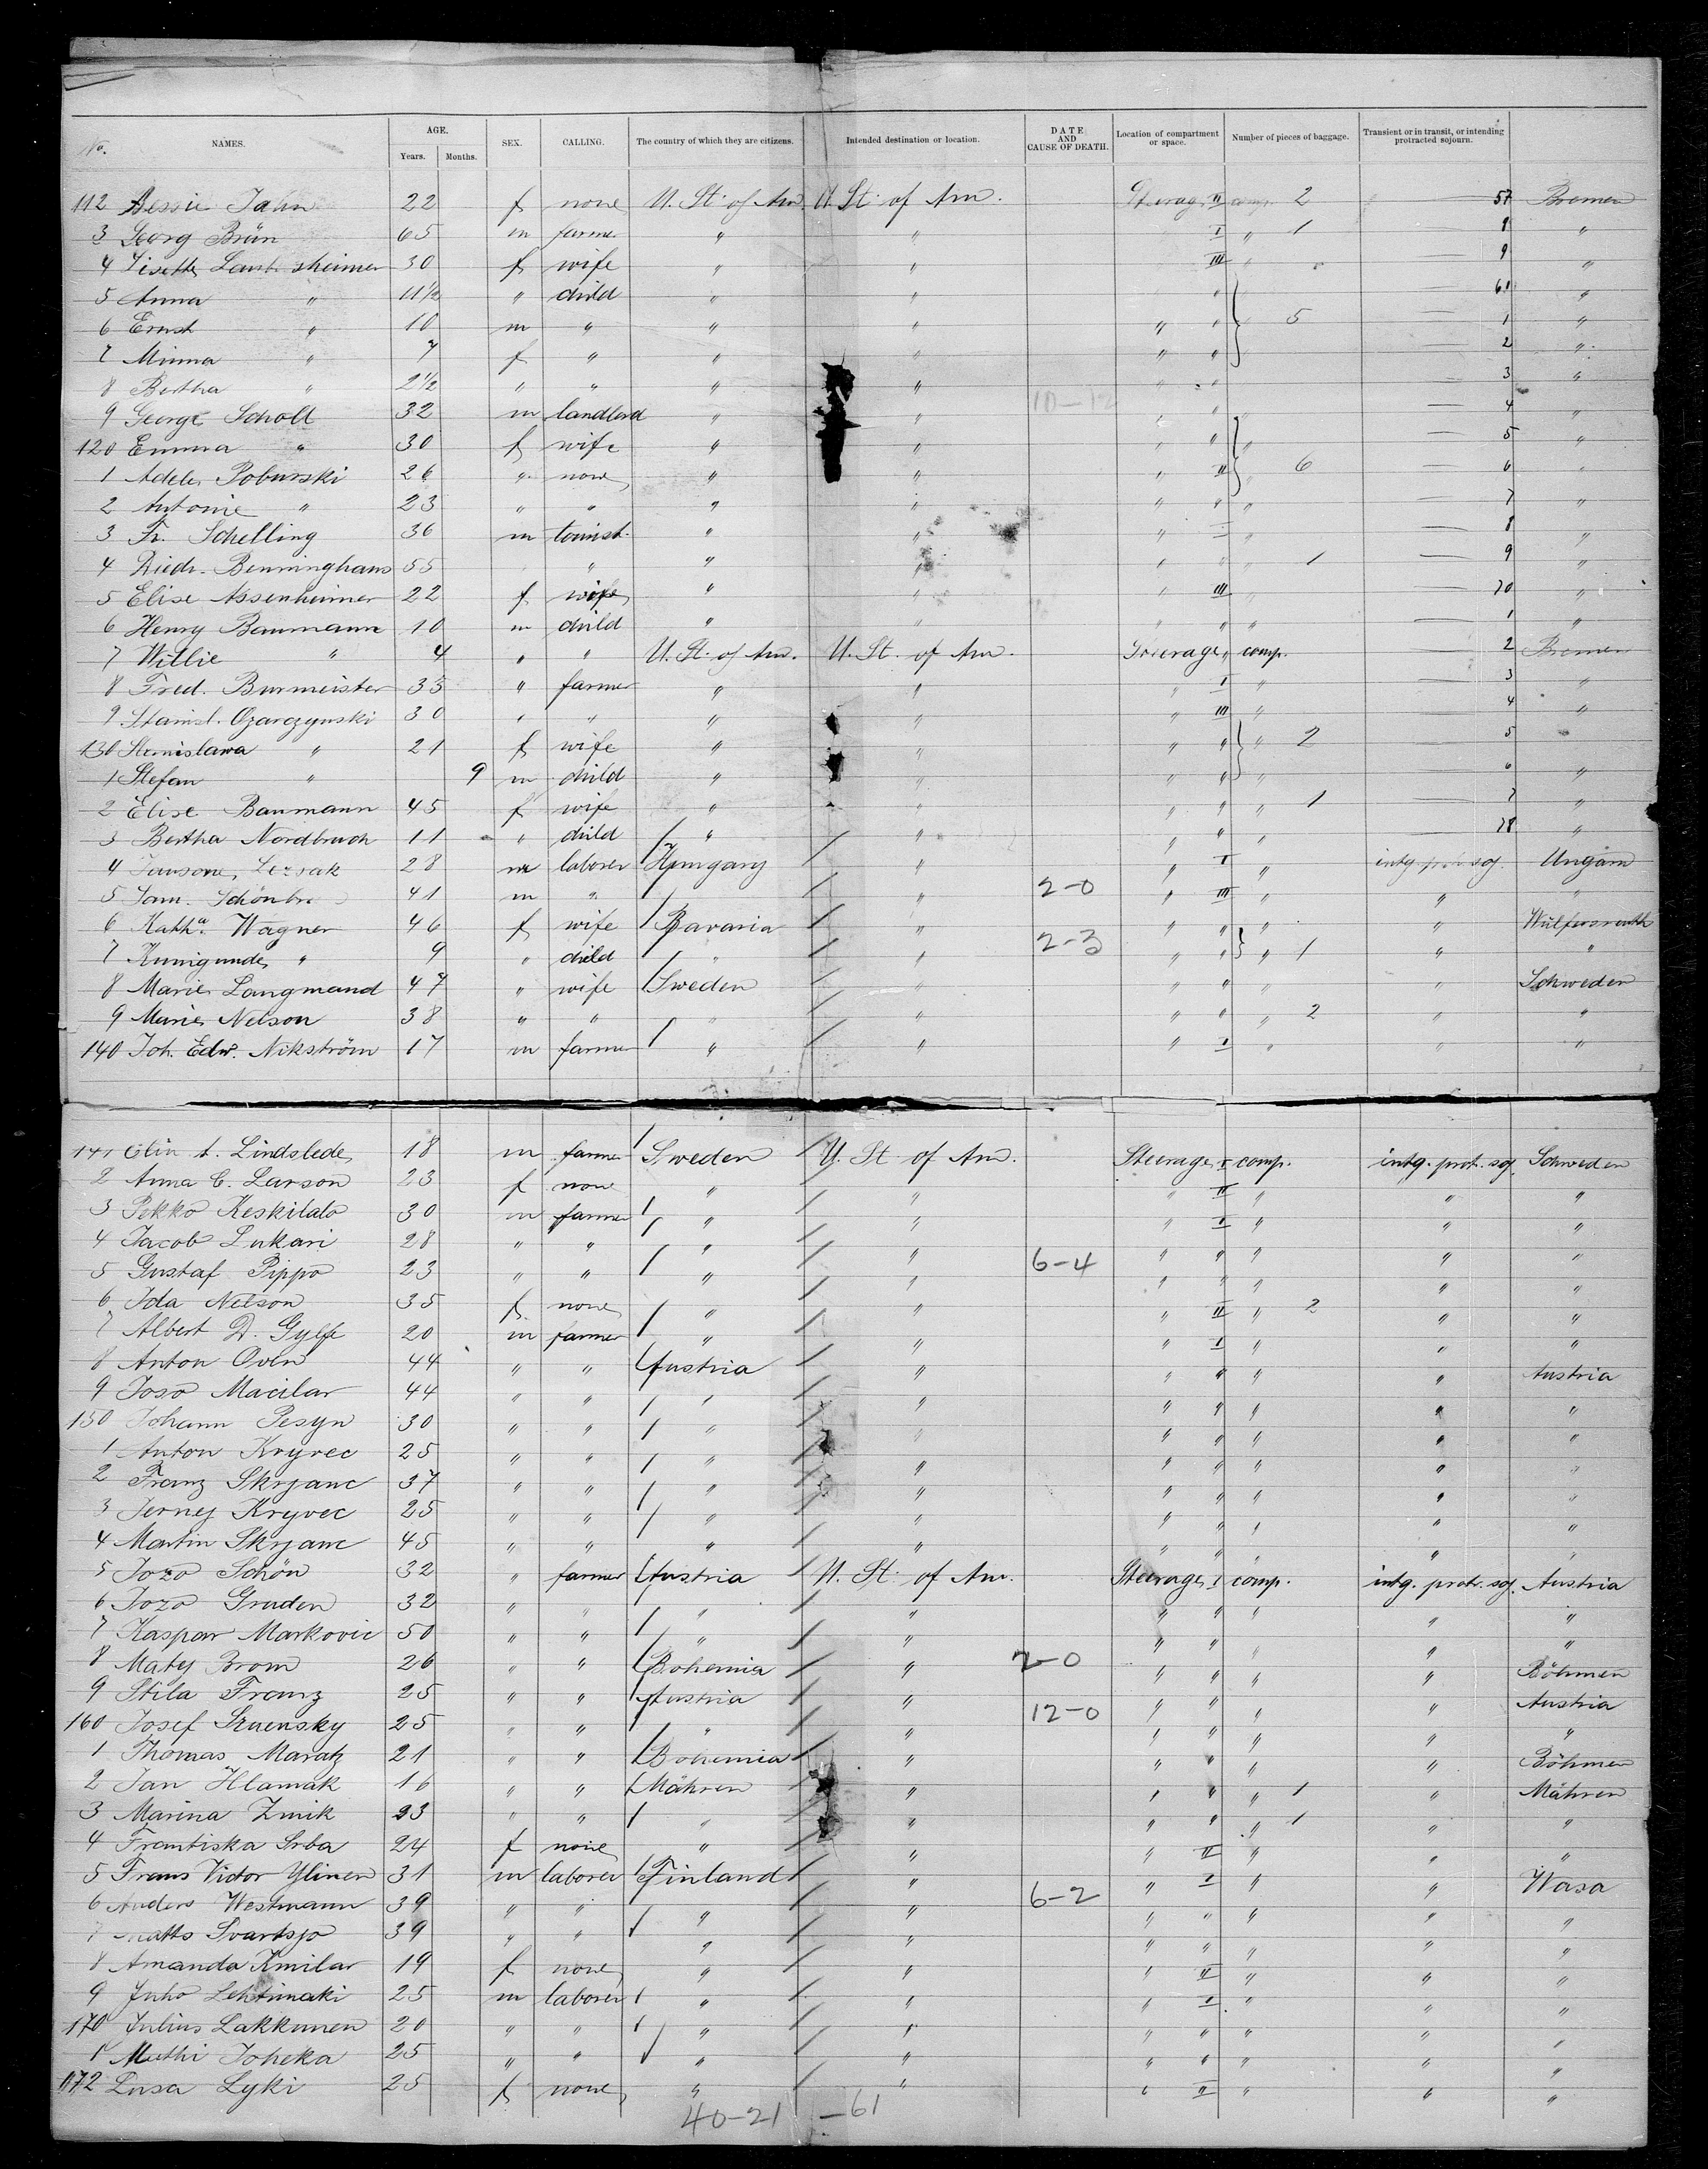 No. NAMES. AGE. Years. Months. SEX. CALLING. The country of which they are citizens. Intended destination or location. DATE AND CAUSE OF DEATH. Location of compartment or space. Number of pieces of baggage. Transient or in transit, or intending protracted sojourn.
112 Bessie Jahn 22 f none U. St. of Am. U. St. of Am. Steerage II comp. 2 — 57 Bremen
3 Georg Brün 65 m farmer " " I " 1 — 8 "
4 Lisette 30 f wife " " III " — 9 "
5 Anna " 11 1/2 " child " " " — 61 "
6 Ernst " 10 m " " " " " 5 — 1 "
7 Minna " 7 f " " " " " — 2 "
8 Bertha " 2 1/2 " " " " " " — 3 "
9 George Scholl 32 m landlord " " 10–12 " " — 4 "
120 Emma " 30 f wife " " " " " — 5 "
1 Adele Poburski 26 " none " " " II " 6 — 6 "
2 Antonie " 23 " " " " " " " — 7 "
3 Fr. Schelling 36 m tourist " " " I " — 8 "
4 Diedr. Benninghaus 55 " " " " " " 1 — 9 "
5 Elise Assenheimer 22 f wife " " " III " — 70 "
6 Henry Baumann 10 m child " " " " " — 1 "
7 Willie " 4 " " U. St. of Am. U. St. of Am. Steerage " comp. — 2 Bremen
8 Fred. Burmeister 35 " farmer " " " I " — 3 "
9 Stanisl. Ozarczynski 30 " " " " " III " — 4 "
130 Stanislawa " 21 f wife " " " " " 2 — 5 "
1 Stefan " 9 m child " " " " " — 6 "
2 Elise Baumann 45 f wife " " " " " 1 — 7 "
3 Bertha Nordbruch 11 " child " " " " " — 78 "
4 28 m laborer Hungary " " I " intg. prot. soj. Ungarn
5 Sam. 41 m " " 2–0 " III " " "
6 Katha. Wagner 46 f wife Bavaria " " " " " Wülfersreuth
7 Kunigunde " 9 " child " " 2–3 " " " 1 " "
8 Marie Langmand 47 " wife Sweden " " " " " Schweden
9 Marie Nelson 38 " " " " " " " 2 " "
140 Joh. Edw. Nikström 17 m farmer " " " I " " "
141 Elin A. Lindslede 18 m farmer Sweden U. St. of Am. Steerage I comp. intg. prot. soj. Schweden
2 Anna C. Larson 23 f none " " " II " " "
3 Pekko Keskilalo 30 m farmer " " " I " " "
4 Jacob Lukari 28 " " " " " " " " "
5 Gustaf Pippo 23 " " " " 6–4 " " " " "
6 Ida Nelson 35 f none " " " II " 2 " "
7 Albert D. Gylfe 20 m farmer " " " I " " "
8 Anton Oven 44 " " Austria " " " " " Austria
9 Joso Macilar 44 " " " " " " " " "
150 Johann Pesyn 30 " " " " " " " " "
1 Anton Kryvec 25 " " " " " " " " "
2 Franz Skrjanc 37 " " " " " " " " "
3 Jerney Kryvec 25 " " " " " " " " "
4 Martin Skrjanc 45 " " " " " " " " "
5 Jozo Schön 32 " farmer Austria U. St. of Am. Steerage I comp. intg. prot. soj. Austria
6 Jozo Gruden 32 " " " " " " " " "
7 Kaspar Markovic 50 " " " " " " " " "
8 Matej Brom 26 " " Bohemia " 2–0 " " " " Böhmen
9 Stila Franz 25 " " Austria " 12–0 " " " " Austria
160 Josef 25 " " " " " " " " "
1 Thomas Maratz 21 " " Bohemia " " " " " Böhmen
2 Jan Hlamak 16 " " Mähren " " " " 1 " Mähren
3 Marina Zmik 23 " " " " " " " 1 " "
4 Frantiska Srba 24 f none " " " II " " "
5 Frans Victor Ylinen 31 m laborer Finland " " I " " Wasa
6 Anders Westmann 39 " " " " 6–2 " " " " "
7 Matts Svartsjo 39 " " " " " " " " "
8 Amanda Kmilar 19 f none " " " II " " "
9 Juho Lehtimaki 25 m laborer " " " I " " "
170 Julius Lakkunen 20 " " " " " " " " "
1 Mathi Joheka 25 " " " " " " " " "
172 Lusa Lyki 25 f none " " " II " " "
40–21 –61